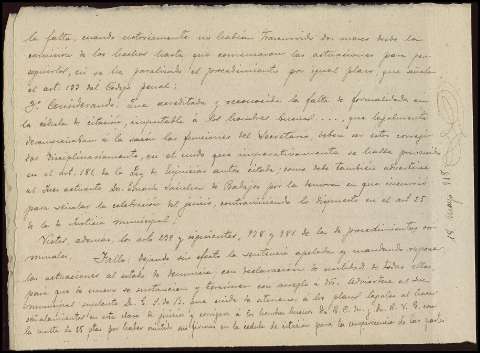 la falta, cuando notoriamente no habían transcurrido dos meses desde la
comisión de los hechos hasta que comenzaron las actuaciones para per-
seguirlos, ni se ha paralizado el procedimiento por igual plazo, que señala
el art. 133 del Código penal:
3º Considerando: Que acreditada y reconocida la falta de formalidades en
la cédula de citación, imputable á los hombres buenos ...., que legalmente
desempeñaban á la sazón las funciones del Secretario, deben ser estos corregi-
dos disciplinariamente, en el modo que imperativamente se halla prevenido
en el art. 181 de la Ley de Enjuiciar antes citada; como debe también advertirse
al Juez actuante Dn. Eduardo Sánchez de Badajoz por la demora en que incurrió
para señalar la celebración del juicio, contraviniendo lo dispuesto en el art. 25
de la de Justicia municipal.
Vistos, además, los arts. y siguientes, y 981 de la de procedimientos cri-
minales. Fallo: dejando sin efecto la sentencia apelada y mandando reponer
las actuaciones al estado de denuncia con declaración de nulidad de todas ellas
para que de nuevo se sustancien y terminen con arreglo á dº. Adviértase al Juez
municipal suplente D. E. S. de B. que cuide de atenerse á los plazos legales al hacer
señalamientos en esta clase de juicios y corrijo á los hombres buenos
la multa de 25 ptas por haber omitido en la cédula de citación para la comparecencia de las partes
15 mayo 918